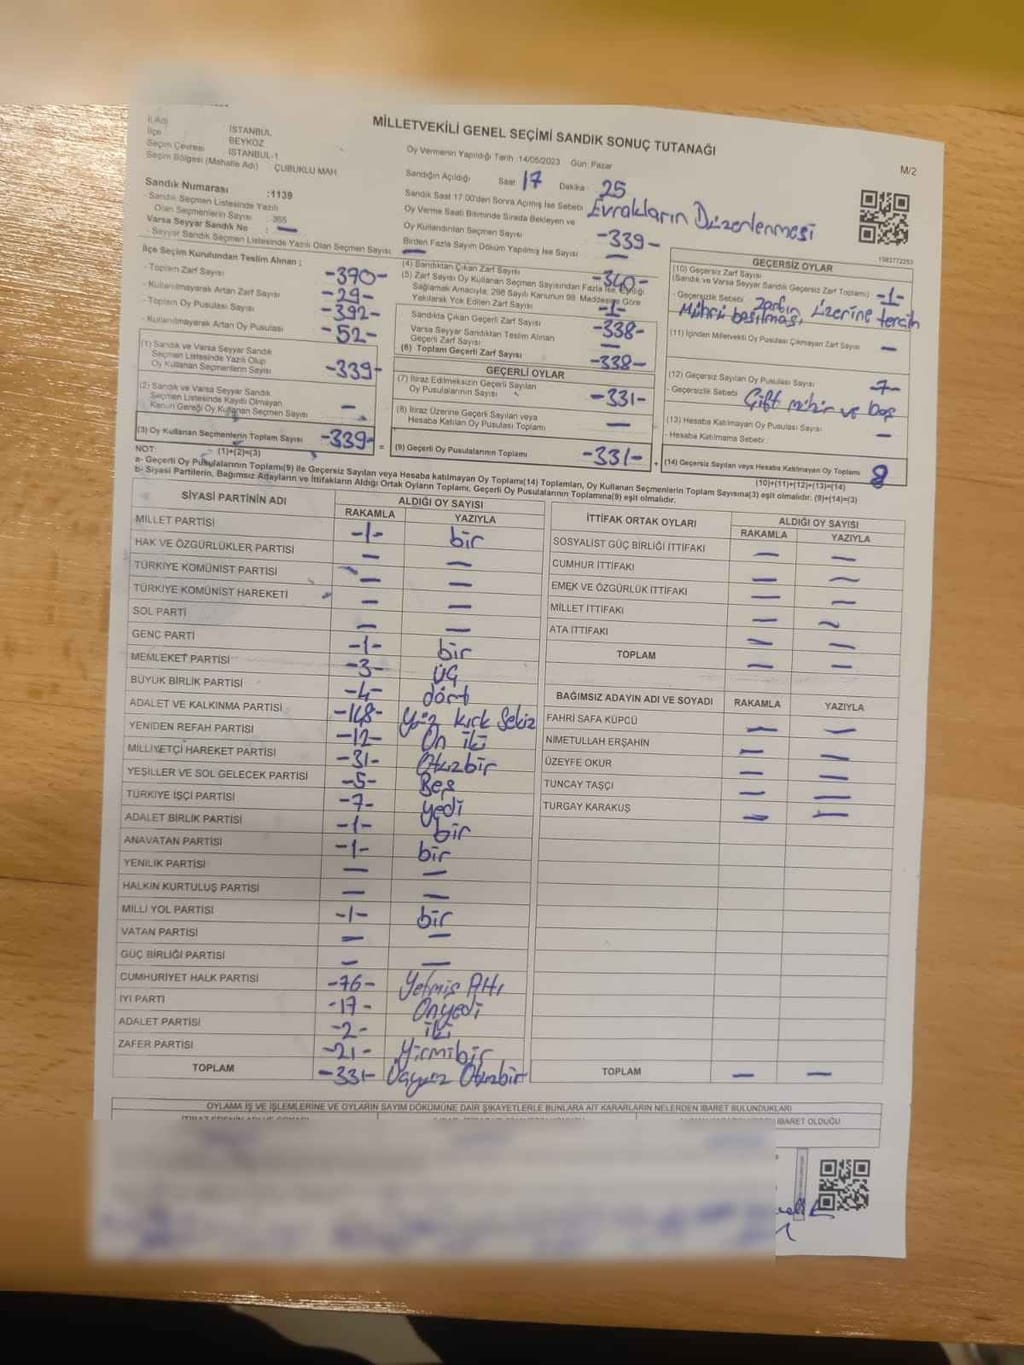 MİLLETVEKİLİ GENEL SEÇİMİ SANDIK SONUÇ TUTANAĞI
M/2
İl Adı İSTANBUL
İlçe BEYKOZ
Seçim Çevresi İSTANBUL-1
Seçim Bölgesi (Mahalle Adı) ÇUBUKLU MAH
Sandık Numarası :1139
- Sandık Seçmen Listesinde Yazılı
Olan Seçmenlerin Sayısı : 355
Varsa Seyyar Sandık No : —
- Seyyar Sandık Seçmen Listesinde Yazılı Olan Seçmen Sayısı: —
Oy Vermenin Yapıldığı Tarih :14/05/2023 Gün: Pazar
Sandığın Açıldığı Saat 17 Dakika : 25
Sandık Saat 17.00'den Sonra Açılmış İse Sebebi Evrakların Düzenlenmesi
Oy Verme Saati Bitiminde Sırada Bekleyen ve
Oy Kullandırılan Seçmen Sayısı -339-
Birden Fazla Sayım Döküm Yapılmış İse Sayısı —
İlçe Seçim Kurulundan Teslim Alınan ;
- Toplam Zarf Sayısı -390-
- Kullanılmayarak Artan Zarf Sayısı -29-
- Toplam Oy Pusulası Sayısı -392-
- Kullanılmayarak Artan Oy Pusulası -52-
(1) Sandık ve Varsa Seyyar Sandık
Seçmen Listesinde Yazılı Olup
Oy Kullanan Seçmenlerin Sayısı -339-
(2) Sandık ve Varsa Seyyar Sandık
Seçmen Listesinde Kayıtlı Olmayan
Kanun Gereği Oy Kullanan Seçmen Sayısı —
(3) Oy Kullanan Seçmenlerin Toplam Sayısı -339-
(1)+(2)=(3)
(4) Sandıktan Çıkan Zarf Sayısı -340-
(5) Zarf Sayısı Oy Kullanan Seçmen Sayısından Fazla İse, Eşitliği
Sağlamak Amacıyla; 298 Sayılı Kanunun 98. Maddesine Göre
Yakılarak Yok Edilen Zarf Sayısı -1-
Sandıkta Çıkan Geçerli Zarf Sayısı -338-
Varsa Seyyar Sandıktan Teslim Alınan
Geçerli Zarf Sayısı —
(6) Toplam Geçerli Zarf Sayısı -338-
GEÇERLİ OYLAR
(7) İtiraz Edilmeksizin Geçerli Sayılan
Oy Pusulalarının Sayısı -331-
(8) İtiraz Üzerine Geçerli Sayılan veya
Hesaba Katılan Oy Pusulası Toplamı —
(9) Geçerli Oy Pusulalarının Toplamı -331-
1983772253
GEÇERSİZ OYLAR
(10) Geçersiz Zarf Sayısı
(Sandık ve Varsa Seyyar Sandık Geçersiz Zarf Toplamı) -1-
- Geçersizlik Sebebi Zarfın Üzerine tercih
Mührü basılması
(11) İçinden Milletvekili Oy Pusulası Çıkmayan Zarf Sayısı —
(12) Geçersiz Sayılan Oy Pusulası Sayısı -7-
- Geçersizlik Sebebi Çift mühür ve boş
(13) Hesaba Katılmayan Oy Pusulası Sayısı —
- Hesaba Katılmama Sebebi :
(14) Geçersiz Sayılan veya Hesaba Katılmayan Oy Toplamı 8
(10)+(11)+(12)+(13)=(14)
NOT:
a- Geçerli Oy Pusulalarının Toplamı(9) ile Geçersiz Sayılan veya Hesaba katılmayan Oy Toplamı(14) Toplamları, Oy Kullanan Seçmenlerin Toplam Sayısına(3) eşit olmalıdır. (9)+(14)=(3)
b- Siyasi Partilerin, Bağımsız Adayların ve İttifakların Aldığı Ortak Oyların Toplamı, Geçerli Oy Pusulalarının Toplamına(9) eşit olmalıdır.
SİYASİ PARTİNİN ADI ALDIĞI OY SAYISI
RAKAMLA YAZIYLA
MİLLET PARTİSİ -1- bir
HAK VE ÖZGÜRLÜKLER PARTİSİ — —
TÜRKİYE KOMÜNİST PARTİSİ — —
TÜRKİYE KOMÜNİST HAREKETİ — —
SOL PARTİ — —
GENÇ PARTİ -1- bir
MEMLEKET PARTİSİ -3- üç
BÜYÜK BİRLİK PARTİSİ -4- dört
ADALET VE KALKINMA PARTİSİ -148- Yüz kırk Sekiz
YENİDEN REFAH PARTİSİ -12- On iki
MİLLİYETÇİ HAREKET PARTİSİ -31- Otuzbir
YEŞİLLER VE SOL GELECEK PARTİSİ -5- Beş
TÜRKİYE İŞÇİ PARTİSİ -7- yedi
ADALET BİRLİK PARTİSİ -1- bir
ANAVATAN PARTİSİ -1- bir
YENİLİK PARTİSİ — —
HALKIN KURTULUŞ PARTİSİ — —
MİLLİ YOL PARTİSİ -1- bir
VATAN PARTİSİ — —
GÜÇ BİRLİĞİ PARTİSİ — —
CUMHURİYET HALK PARTİSİ -76- Yetmiş Altı
İYİ PARTİ -17- Onyedi
ADALET PARTİSİ -2- iki
ZAFER PARTİSİ -21- Yirmibir
TOPLAM -331- Üçyüz Otuzbir
İTTİFAK ORTAK OYLARI ALDIĞI OY SAYISI
RAKAMLA YAZIYLA
SOSYALİST GÜÇ BİRLİĞİ İTTİFAKI — —
CUMHUR İTTİFAKI — —
EMEK VE ÖZGÜRLÜK İTTİFAKI — —
MİLLET İTTİFAKI — —
ATA İTTİFAKI — —
TOPLAM — —
BAĞIMSIZ ADAYIN ADI VE SOYADI RAKAMLA YAZIYLA
FAHRİ SAFA KÜPCÜ — —
NİMETULLAH ERŞAHİN — —
ÜZEYFE OKUR — —
TUNCAY TAŞÇI — —
TURGAY KARAKUŞ — —
TOPLAM — —
OYLAMA İŞ VE İŞLEMLERİNE VE OYLARIN SAYIM DÖKÜMÜNE DAİR ŞİKAYETLERLE BUNLARA AİT KARARLARIN NELERDEN İBARET BULUNDUKLARI
İBARET OLDUĞU